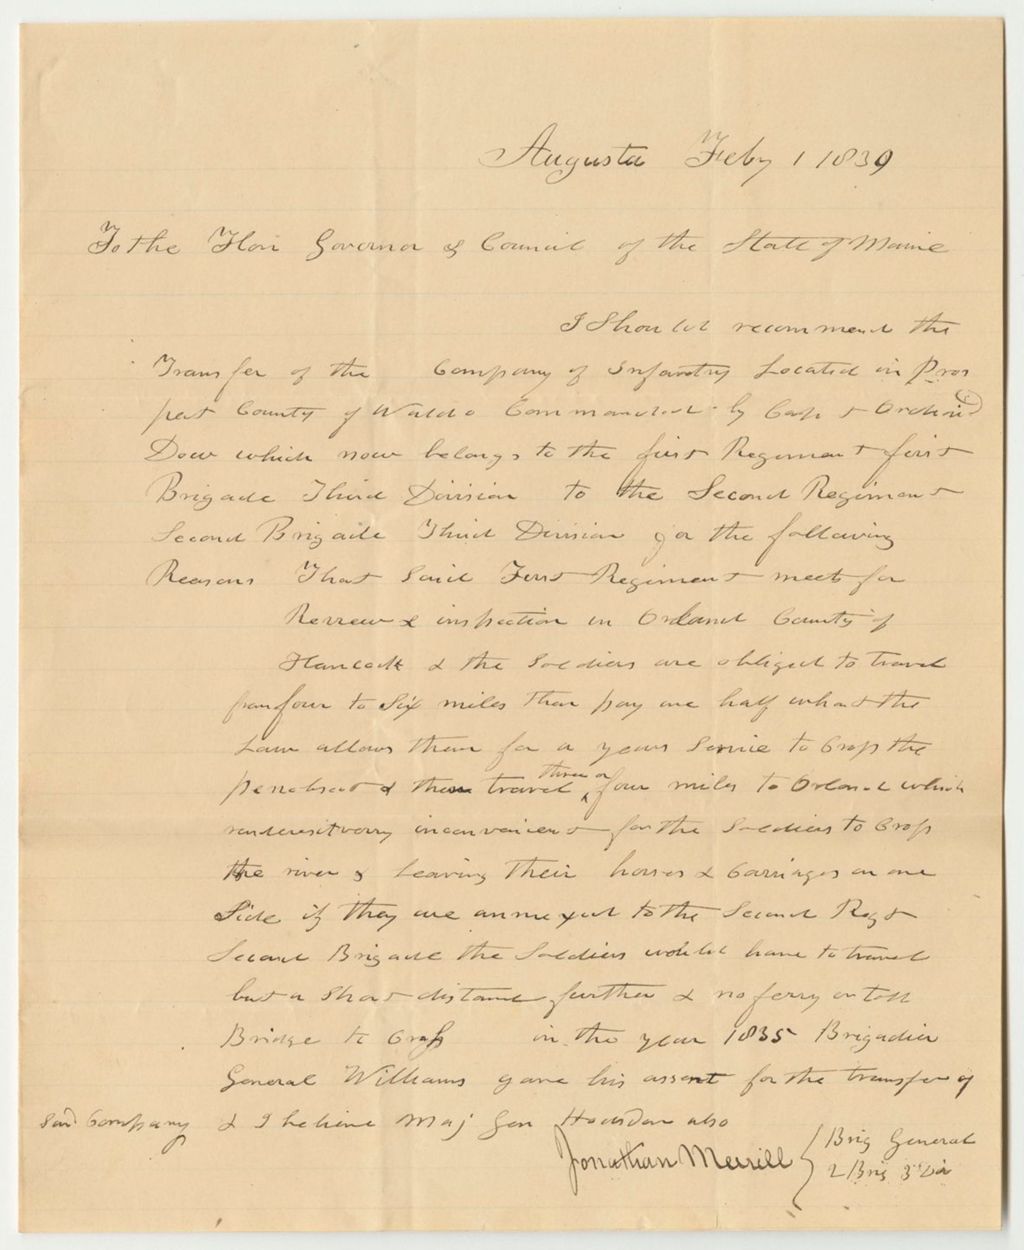 Augusta Feby 1 1839
To the Hon Governor & Council of the State of Maine
I Should recommend the
Transfer of the Company of Infantry Located in Pros
pect County of Waldo Commanded by Capt
Dow which now belongs to the first Regiment first
Brigade Third Division to the Second Regiment
Second Brigade Third Division for the following
Reasons That Said First Regiment meets for
Review & inspection in Orland County of
Hancock & the Soldiers are obliged to travel
from four to Six miles then pay one half what the
Law allows them for a years Service to Cross the
penobscot & then travel three or four miles to Orland which
renders it verry inconvenient for the Soldiers to Cross
the river & Leaving Their horses & Carriages on one
Side if they are annexed to the Second Regt
Second Brigade the Soldiers would have to travel
but a Short distance further & no ferry or toll
Bridge to Cross in the year 1835 Brigadier
General Williams gave his assent for the transfer of
said Company & I believe Maj Gen Hodsdon also
Jonathan Merrill } Brig General
2 Brig 3 Div